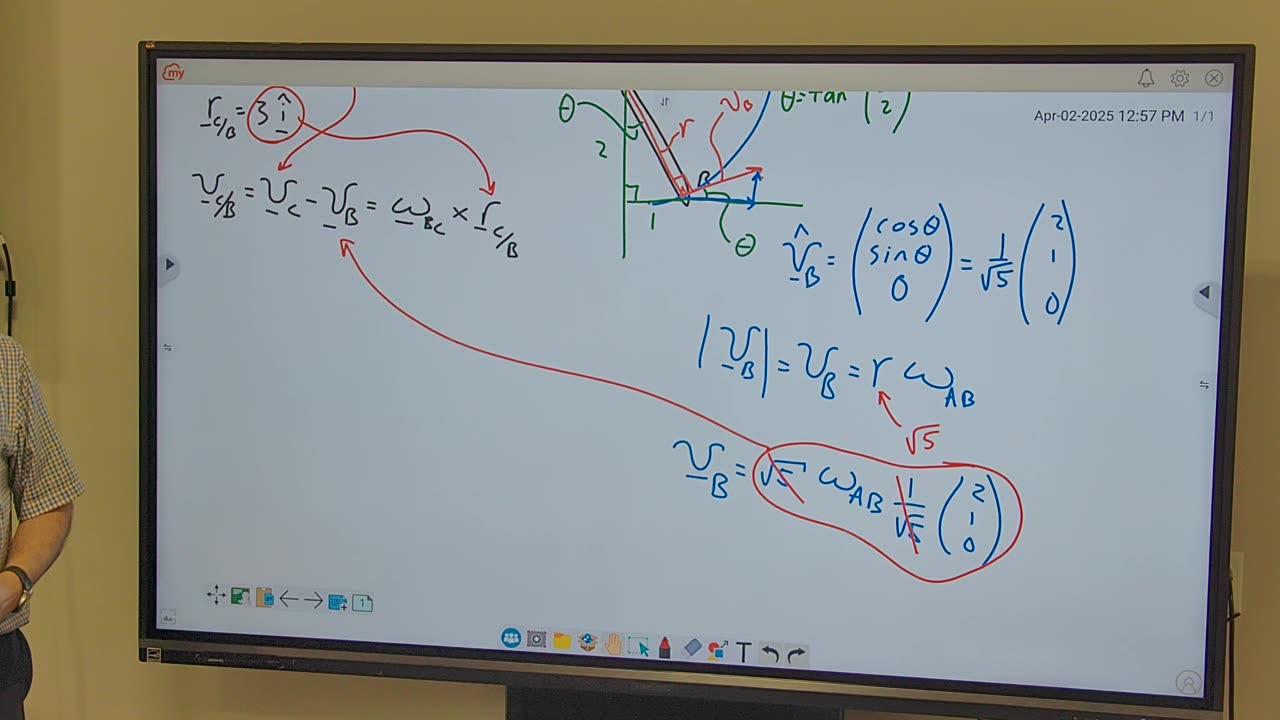 my
Apr-02-2025 12:57 PM 1/1
r_C/B = 3 î
v_C/B = v_C - v_B = ω_BC × r_C/B
θ
2
r
v_B
θ = tan ( 2 )
B
1
θ
v̂_B = (cosθ sinθ 0) = 1/√5 (2 1 0)
|v_B| = v_B = r ω_AB
√5
v_B = √5 ω_AB 1/√5 (2 1 0)
1
T